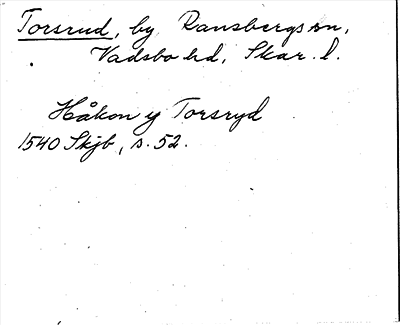 Torsrud, by Ransbergs sn,
Vadsbo hd, Skar. l.
Håkon y Torsryd
1540 Skjb, s. 52.